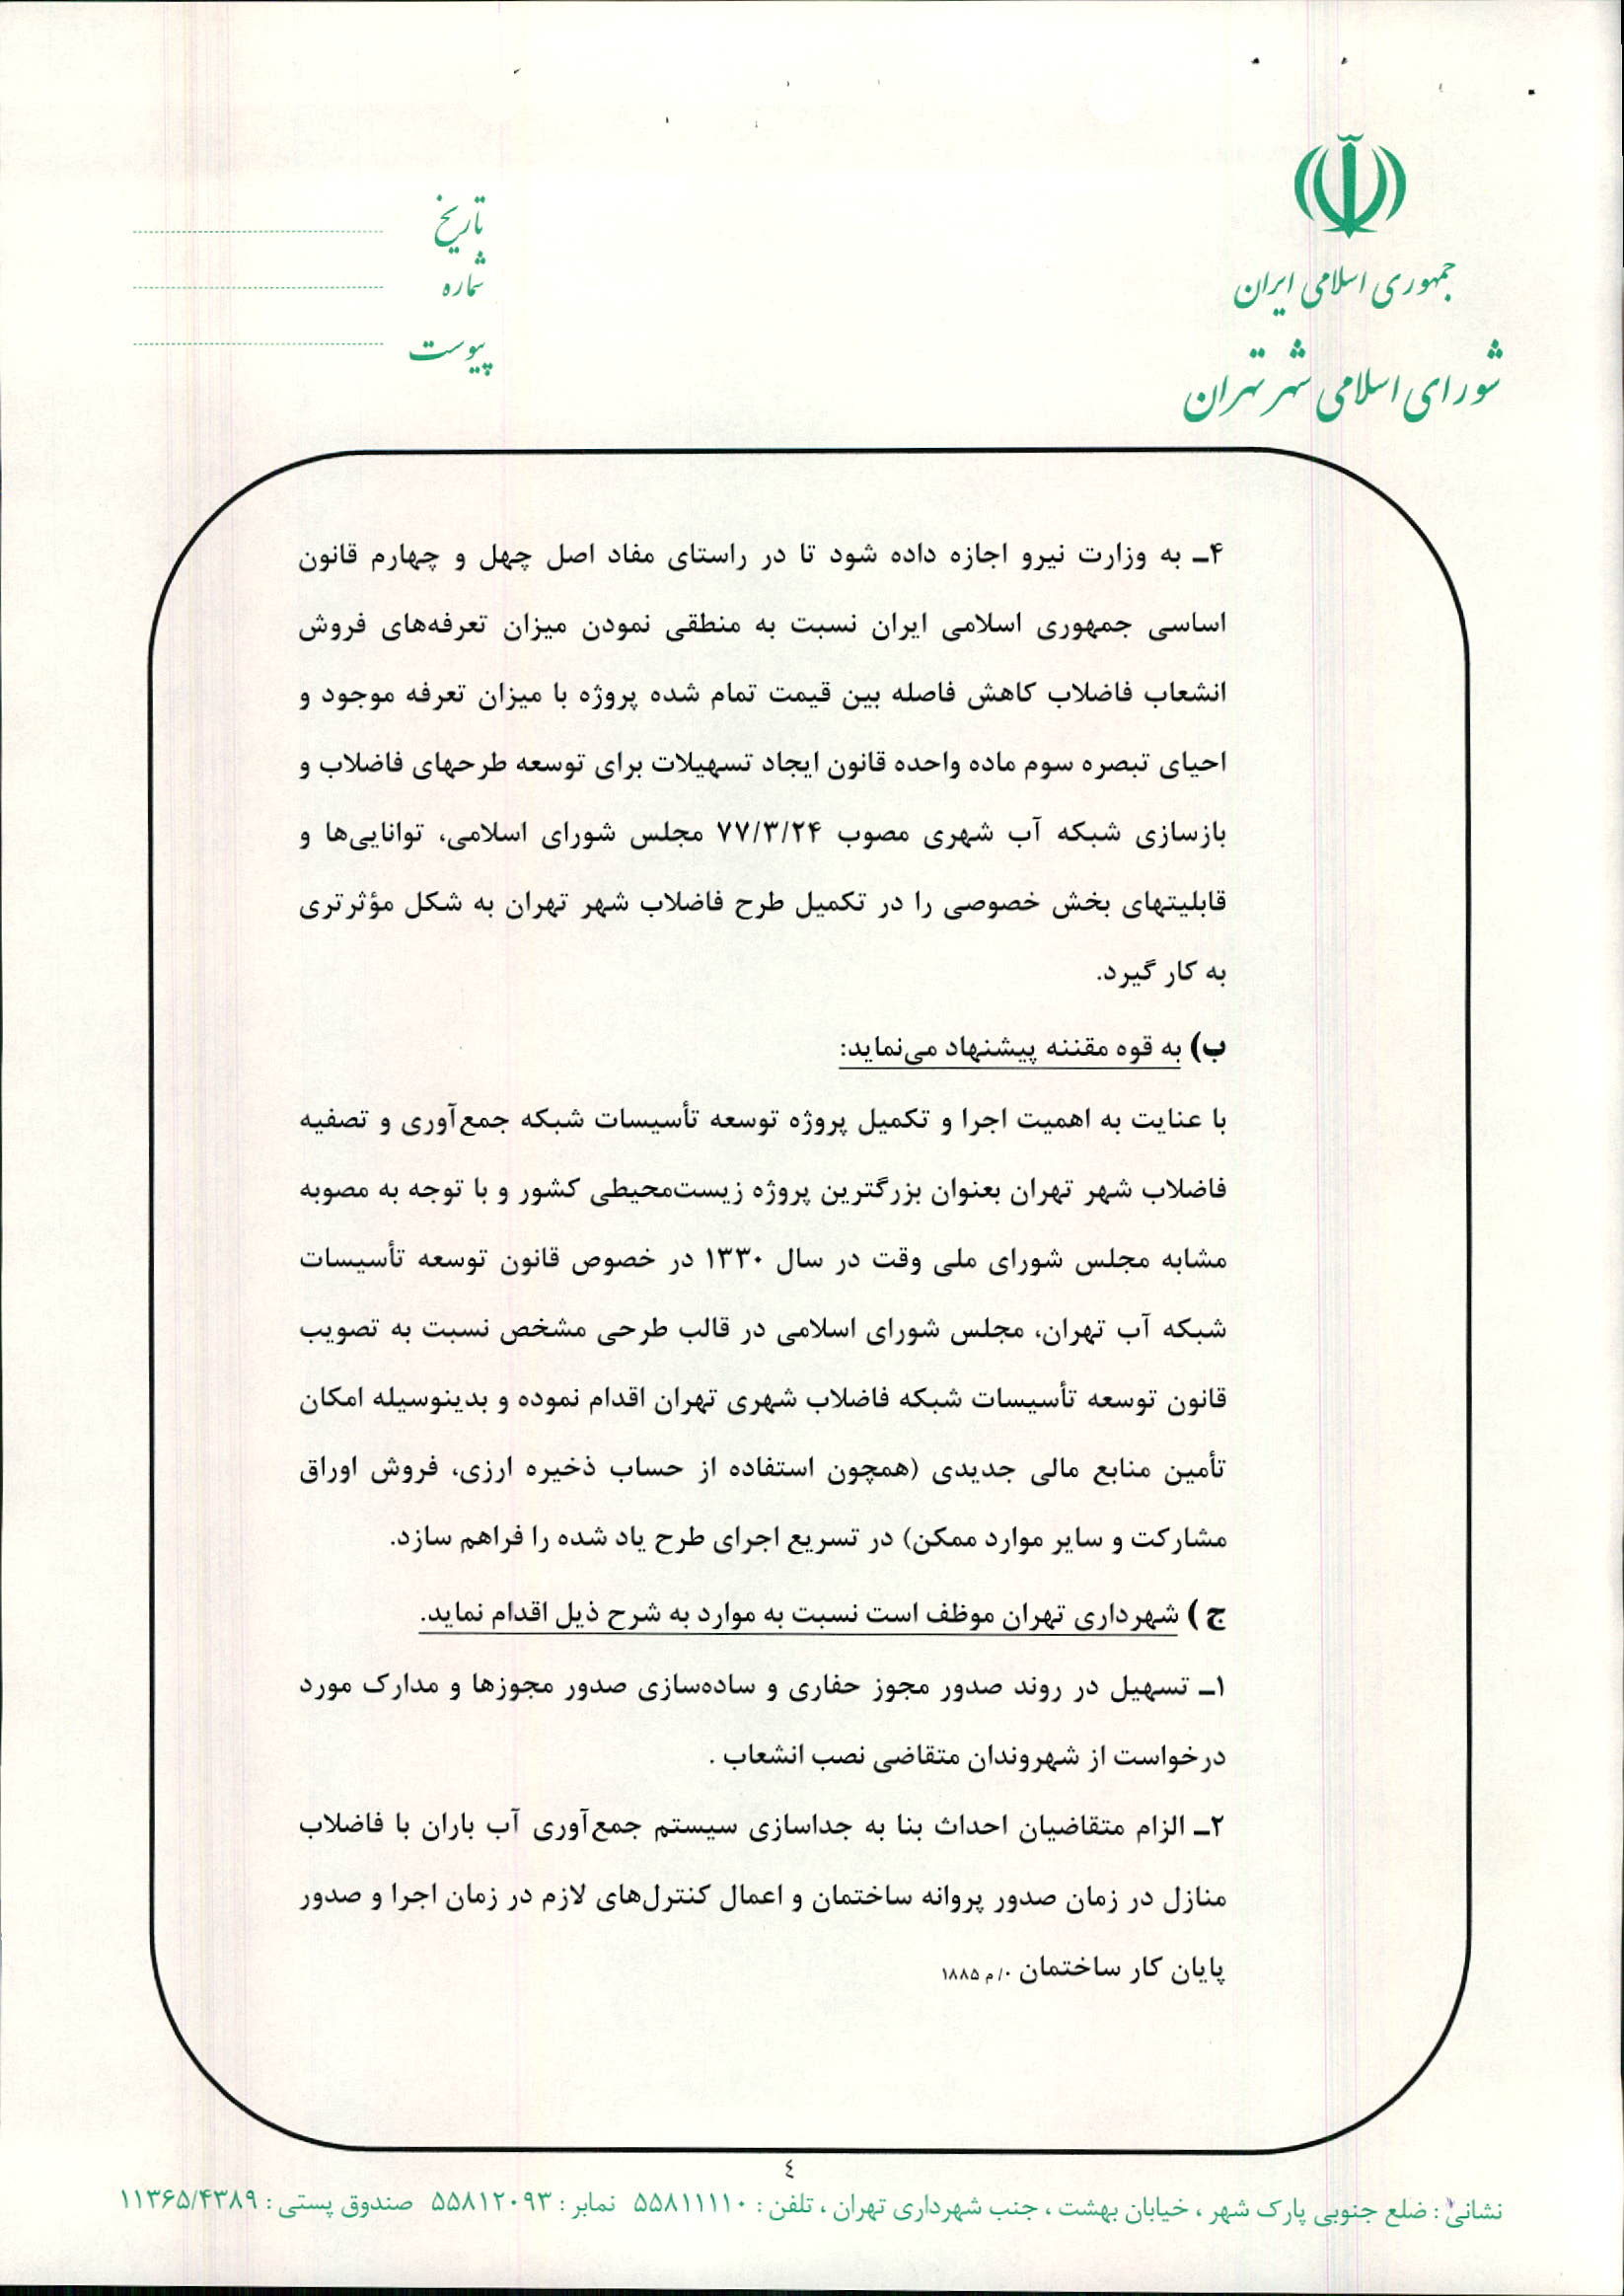 جمهوری اسلامی ایران
شورای اسلامی شهر تهران
تاریخ
شماره
پیوست
۴ـ به وزارت نیرو اجازه داده شود تا در راستای مفاد اصل چهل و چهارم قانون
اساسی جمهوری اسلامی ایران نسبت به منطقی نمودن میزان تعرفه‌های فروش
انشعاب فاضلاب کاهش فاصله بین قیمت تمام شده پروژه با میزان تعرفه موجود و
احیای تبصره سوم ماده واحده قانون ایجاد تسهیلات برای توسعه طرحهای فاضلاب و
بازسازی شبکه آب شهری مصوب ۷۷/۳/۲۴ مجلس شورای اسلامی، توانایی‌ها و
قابلیتهای بخش خصوصی را در تکمیل طرح فاضلاب شهر تهران به شکل مؤثرتری
به کار گیرد.
ب) به قوه مقننه پیشنهاد می‌نماید:
با عنایت به اهمیت اجرا و تکمیل پروژه توسعه تأسیسات شبکه جمع‌آوری و تصفیه
فاضلاب شهر تهران بعنوان بزرگترین پروژه زیست‌محیطی کشور و با توجه به مصوبه
مشابه مجلس شورای ملی وقت در سال ۱۳۳۰ در خصوص قانون توسعه تأسیسات
شبکه آب تهران، مجلس شورای اسلامی در قالب طرحی مشخص نسبت به تصویب
قانون توسعه تأسیسات شبکه فاضلاب شهری تهران اقدام نموده و بدینوسیله امکان
تأمین منابع مالی جدیدی (همچون استفاده از حساب ذخیره ارزی، فروش اوراق
مشارکت و سایر موارد ممکن) در تسریع اجرای طرح یاد شده را فراهم سازد.
ج ) شهرداری تهران موظف است نسبت به موارد به شرح ذیل اقدام نماید.
۱ـ تسهیل در روند صدور مجوز حفاری و ساده‌سازی صدور مجوزها و مدارک مورد
درخواست از شهروندان متقاضی نصب انشعاب .
۲ـ الزام متقاضیان احداث بنا به جداسازی سیستم جمع‌آوری آب باران با فاضلاب
منازل در زمان صدور پروانه ساختمان و اعمال کنترل‌های لازم در زمان اجرا و صدور
پایان کار ساختمان ./۰ م ۱۸۸۵
٤
نشانی : ضلع جنوبی پارک شهر ، خیابان بهشت ، جنب شهرداری تهران ، تلفن : ۵۵۸۱۱۱۱۰ نمابر : ۵۵۸۱۲۰۹۳ صندوق پستی : ۱۱۳۶۵/۴۳۸۹